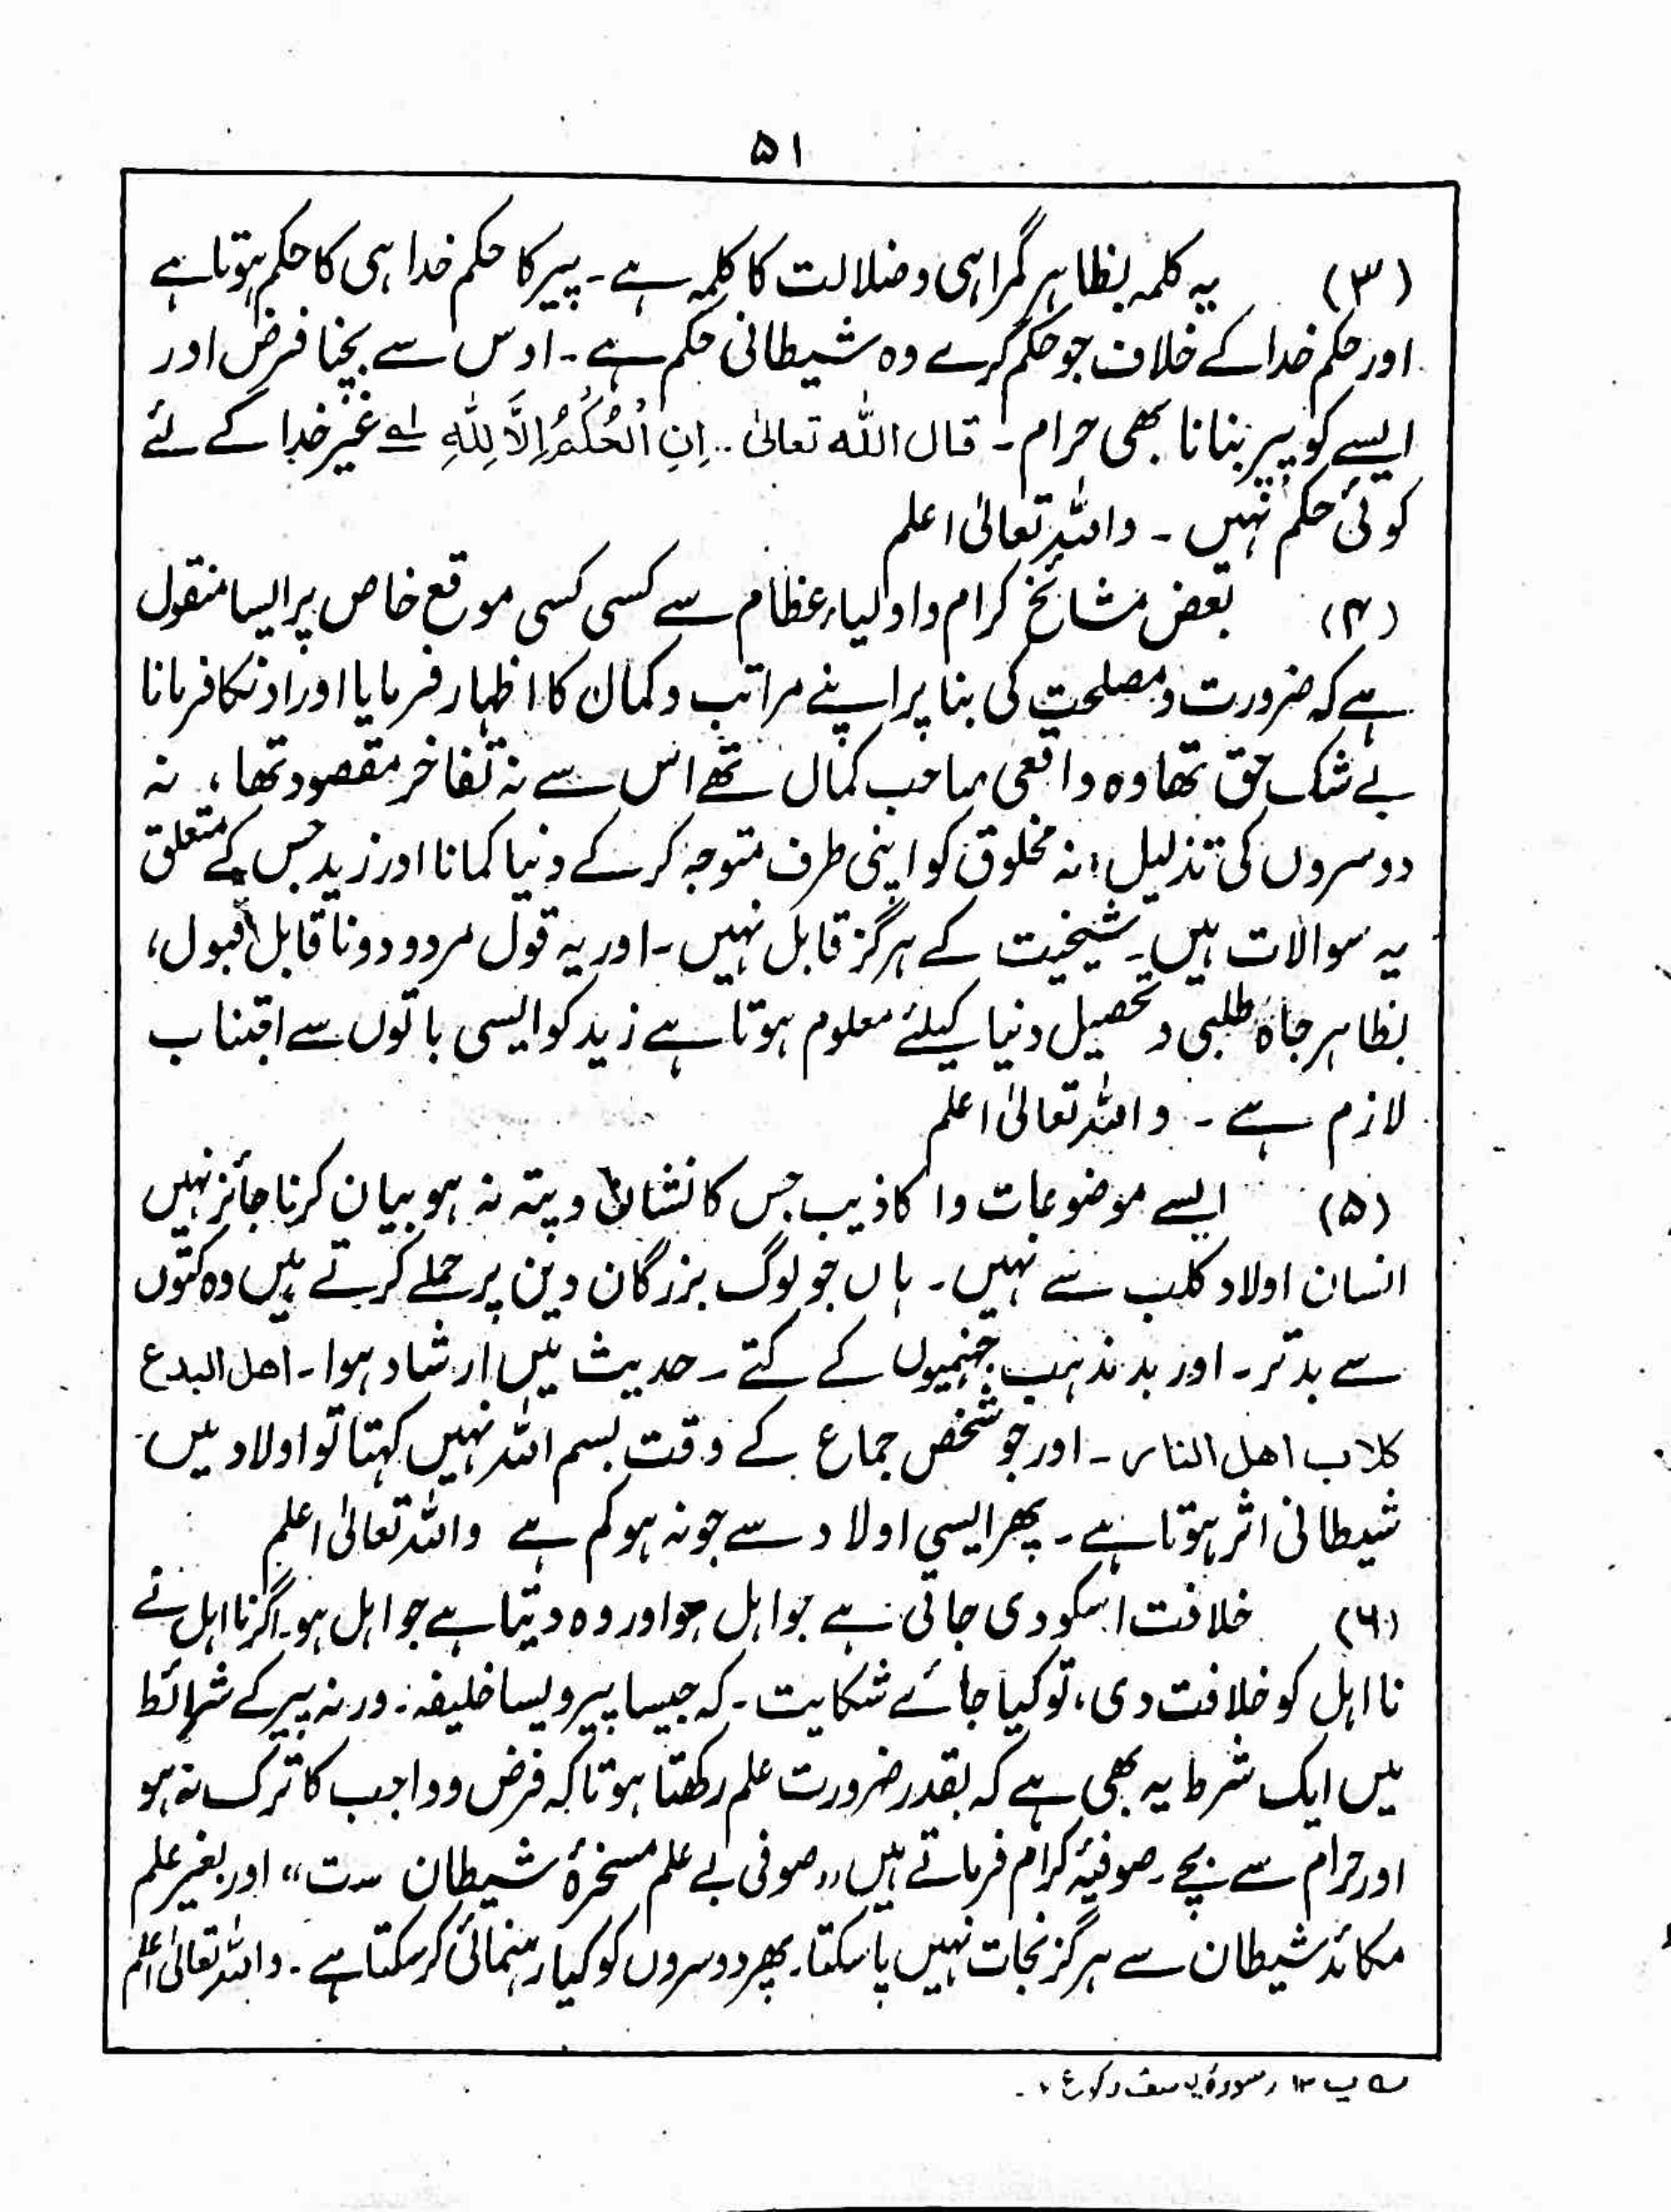 ۵۱
(۳) یہ کلمہ بظاہر گمراہی و ضلالت کا کلمہ ہے۔ پیر کا حکم خدا ہی کا حکم ہوتا ہے
اور حکم خدا کے خلاف جو حکم کرے وہ شیطانی حکم ہے۔ اوس سے بچنا فرض اور
ایسے کو پیر بنانا بھی حرام۔ قال اللہ تعالیٰ۔ اِنِ الْحُكْمُ اِلَّا لِلّٰهِ لہ غیر خدا کے لئے
کوئی حکم نہیں۔ واللہ تعالیٰ اعلم
(۴) بعض مشائخ کرام و اولیاء عظام سے کسی کسی موقع خاص پر ایسا منقول
ہے کہ ضرورت و مصلحت کی بنا پر اپنے مراتب و کمال کا اظہار فرمایا اور اونکا فرمانا
بے شک حق تھا وہ واقعی صاحب کمال تھے اس سے نہ تفاخر مقصود تھا، نہ
دوسروں کی تذلیل، نہ مخلوق کو اپنی طرف متوجہ کر کے دنیا کمانا اور زید جس کے متعلق
یہ سوالات ہیں۔ شیخیت کے ہرگز قابل نہیں۔ اور یہ قول مردود و نا قابل قبول،
بظاہر جاہ طلبی و تحصیل دنیا کیلئے معلوم ہوتا ہے زید کو ایسی باتوں سے اجتناب
لازم ہے۔ واللہ تعالیٰ اعلم
(۵) ایسے موضوعات و اکاذیب جس کا نشان و پتہ نہ ہو بیان کرنا جائز نہیں
انسان اولاد کلب سے نہیں۔ ہاں جو لوگ بزرگان دین پر حملے کرتے ہیں وہ کتوں
سے بدتر۔ اور بدمذہب جہنمیوں کے کتے۔ حدیث میں ارشاد ہوا۔ اھل البدع
کلاب اھل الناس۔ اور جو شخص جماع کے وقت بسم اللہ نہیں کہتا تو اولاد میں
شیطانی اثر ہوتا ہے۔ پھر ایسی اولاد سے جو نہ ہو کم ہے واللہ تعالیٰ اعلم
(۶) خلافت اسکو دی جاتی ہے جو اہل ہو اور وہ دیتا ہے جو اہل ہو۔ اگر نا اہل نے
نا اہل کو خلافت دی، تو کیا جائے شکایت۔ کہ جیسا پیر ویسا خلیفہ۔ ورنہ پیر کے شرائط
میں ایک شرط یہ بھی ہے کہ بقدر ضرورت علم رکھتا ہو تاکہ فرض و واجب کا ترک نہ ہو
اور حرام سے بچے۔ صوفیۂ کرام فرماتے ہیں ،،صوفی بے علم مسخرۂ شیطان ست،، اور بغیر علم
مکائد شیطان سے ہرگز نجات نہیں پا سکتا۔ پھر دوسروں کو کیا رہنمائی کر سکتا ہے۔ واللہ تعالیٰ اعلم
لہ پ ۱۳ سورۂ یوسف رکوع